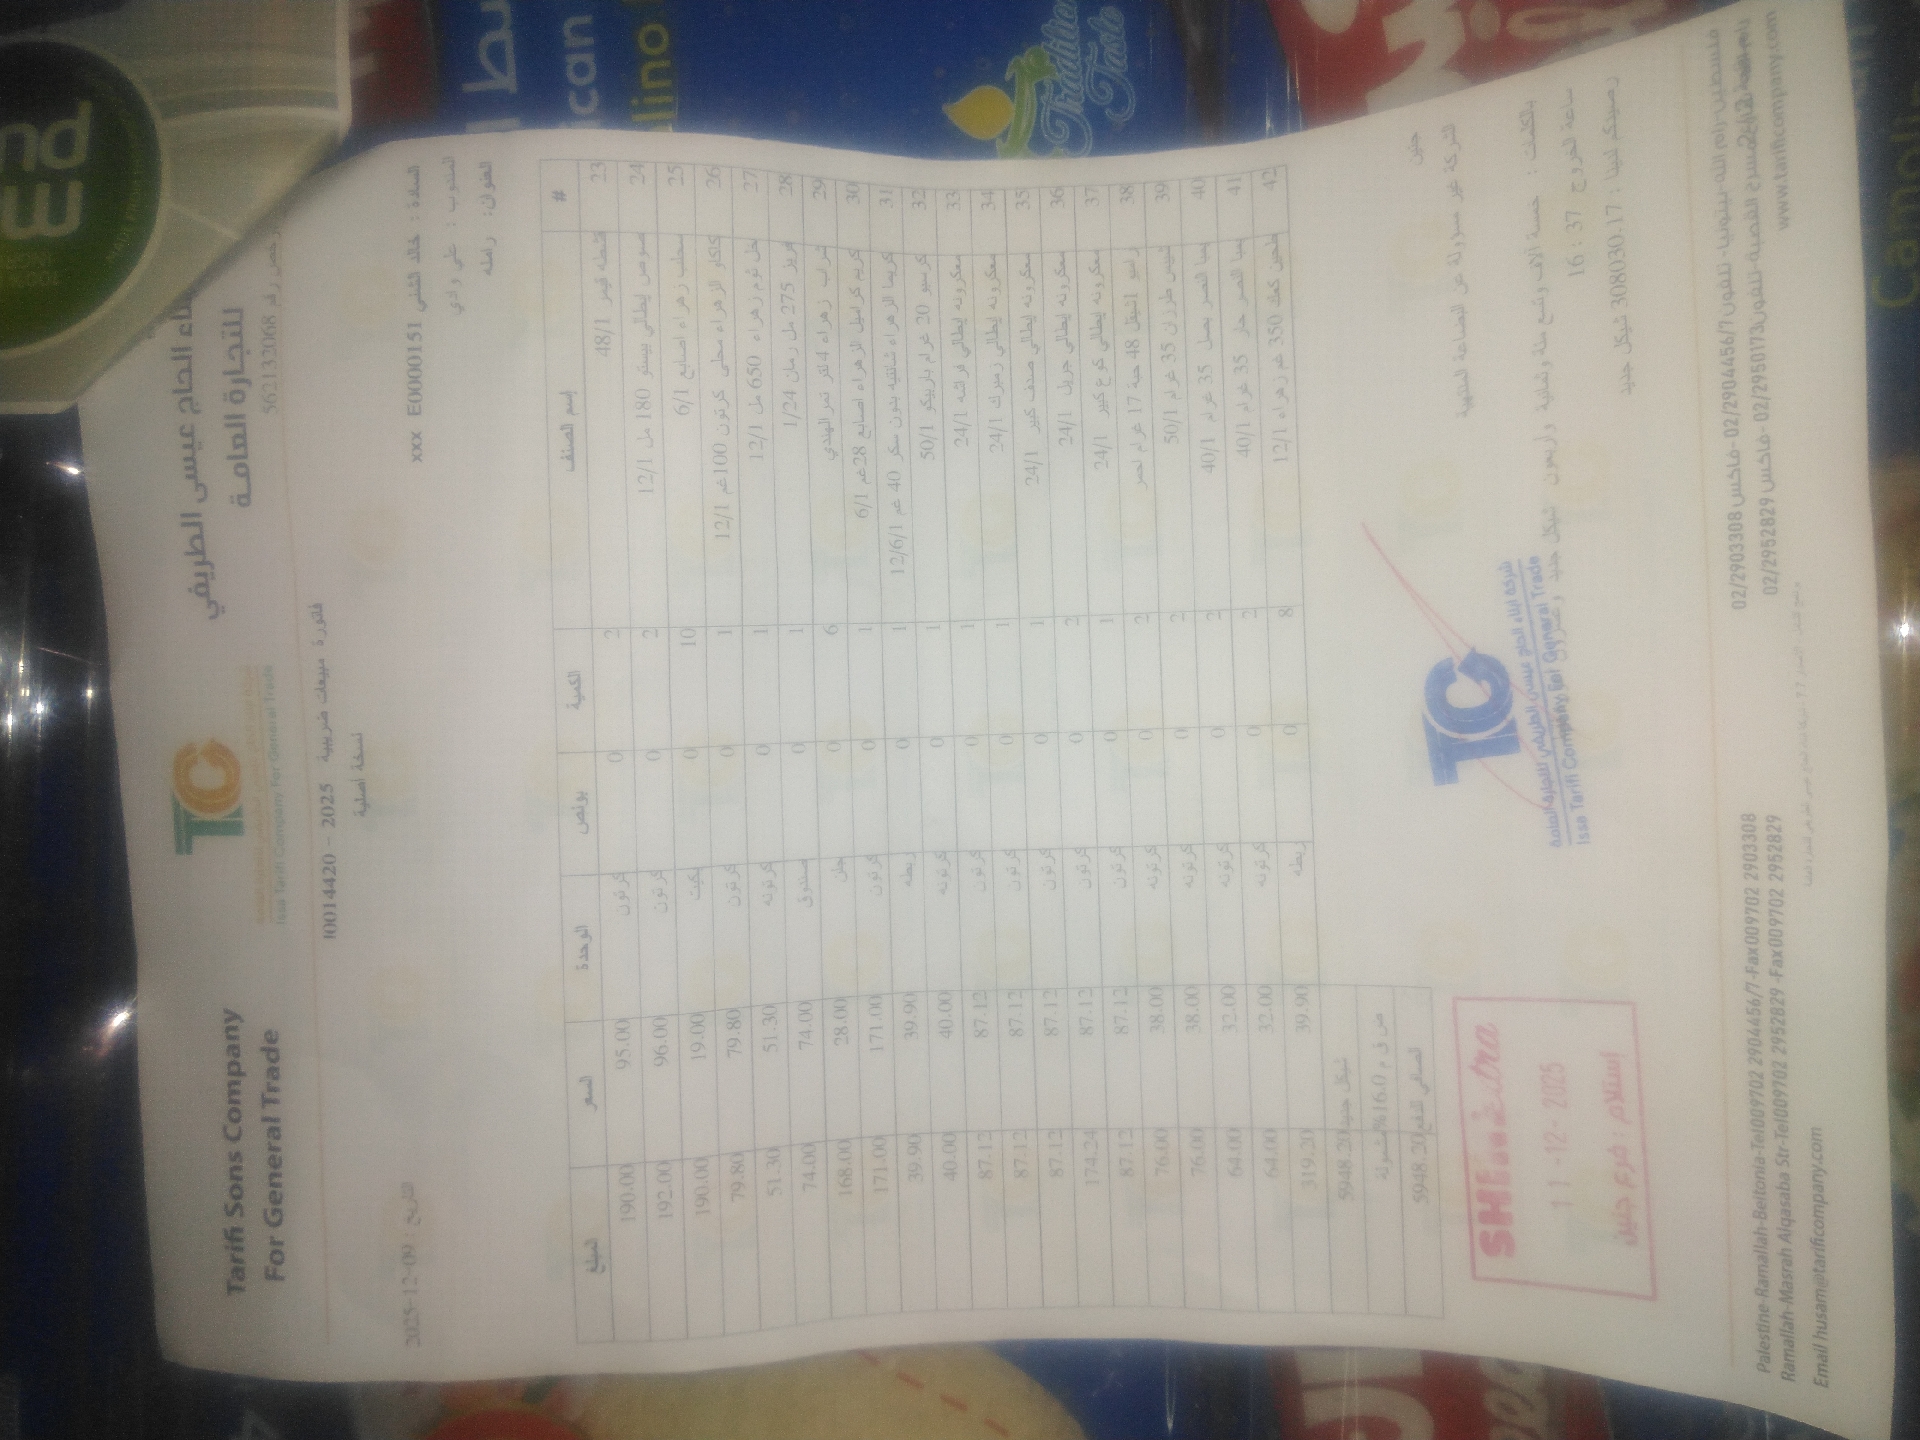 Tarifi Sons Company
For General Trade
TC
Issa Tarifi Company For General Trade
أبناء الحاج عيسى الطريفي
للتجارة العامة
562132068
فاتورة مبيعات ضريبية 2025 - 10014420
نسخة أصلية
السادة : خالد الشني E0000151 xxx
التاريخ : 2025-12-09
المندوب : علي وادي
العنوان: رملة
# إسم الصنف الكمية بونص الوحدة السعر المبلغ
23 قشطه قيمر 48/1 2 0 كرتون 95.00 190.00
24 صوص إيطالي بيستو 180 مل 12/1 2 0 كرتون 96.00 192.00
25 سحلب زهراء اصابع 6/1 10 0 19.00 190.00
26 كاكاو الزهراء محلى كرتون 100غم 12/1 1 0 كرتون 79.80 79.80
27 خل ثوم زهراء 650 مل 12/1 1 0 كرتونه 51.30 51.30
28 فريز 275 مل رمان 1/24 1 0 صندوق 74.00 74.00
29 شراب زهراء 4 لتر تمر الهندي 6 0 جلن 28.00 168.00
30 كريم كراميل الزهراء اصابع 28غم 6/1 1 0 كرتون 171.00 171.00
31 كريما الزهراء شانتيه بدون سكر 40 غم 12/6/1 1 0 ربطه 39.90 39.90
32 20 غرام باربيكو 50/1 1 0 كرتونه 40.00 40.00
33 معكرونه إيطالي فراشه 24/1 1 0 كرتون 87.12 87.12
34 معكرونه إيطالي زمبرك 24/1 1 0 كرتون 87.12 87.12
35 معكرونه إيطالي صدف كبير 24/1 1 0 كرتون 87.12 87.12
36 معكرونه إيطالي جريل 24/1 2 0 كرتون 87.12 174.24
37 معكرونه إيطالي كوع كبير 24/1 1 0 كرتون 87.12 87.12
38 48 حبة 17 غرام احمر 2 0 كرتونه 38.00 76.00
39 شيبس طرزان 35 غرام 50/1 2 0 كرتونه 38.00 76.00
40 بمبا النصر بصل 35 غرام 40/1 2 0 كرتونه 32.00 64.00
41 بمبا النصر حار 35 غرام 40/1 2 0 كرتونه 32.00 64.00
42 طحين كعك 350 غم زهراء 12/1 8 0 ربطه 39.90 319.20
شيكل جديد 5948.20
ض ق م 16.0% مشمولة
الصافي للدفع 5948.20
جنين
الشركة غير مسؤولة عن البضاعة المنتهية
بالكلمات : خمسة آلاف وتسع مئة وثمانية وأربعون شيكل جديد وعشرون
ساعة الخروج 16:37
رصيدكم لدينا : 308030.17 شيكل جديد
TC
شركة ابناء الحاج عيسى الطريفي للتجارة العامة
Issa Tarifi Company For General Trade
11-12-2025
إستلام : فرع جنين
Palestine-Ramallah-Beitonia-Tel009702 2904456/7-Fax009702 2903308
Ramallah-Masrah Alqasaba Str-Tel009702 2952829 -Fax009702 2952829
Email husam@tarificompany.com
فلسطين-رام الله-بيتونيا-تلفون 02/2904456/7 -فاكس 02/2903308
02/2952829 فاكس- 02/2950173
www.tarificompany.com
Traditional
Taste